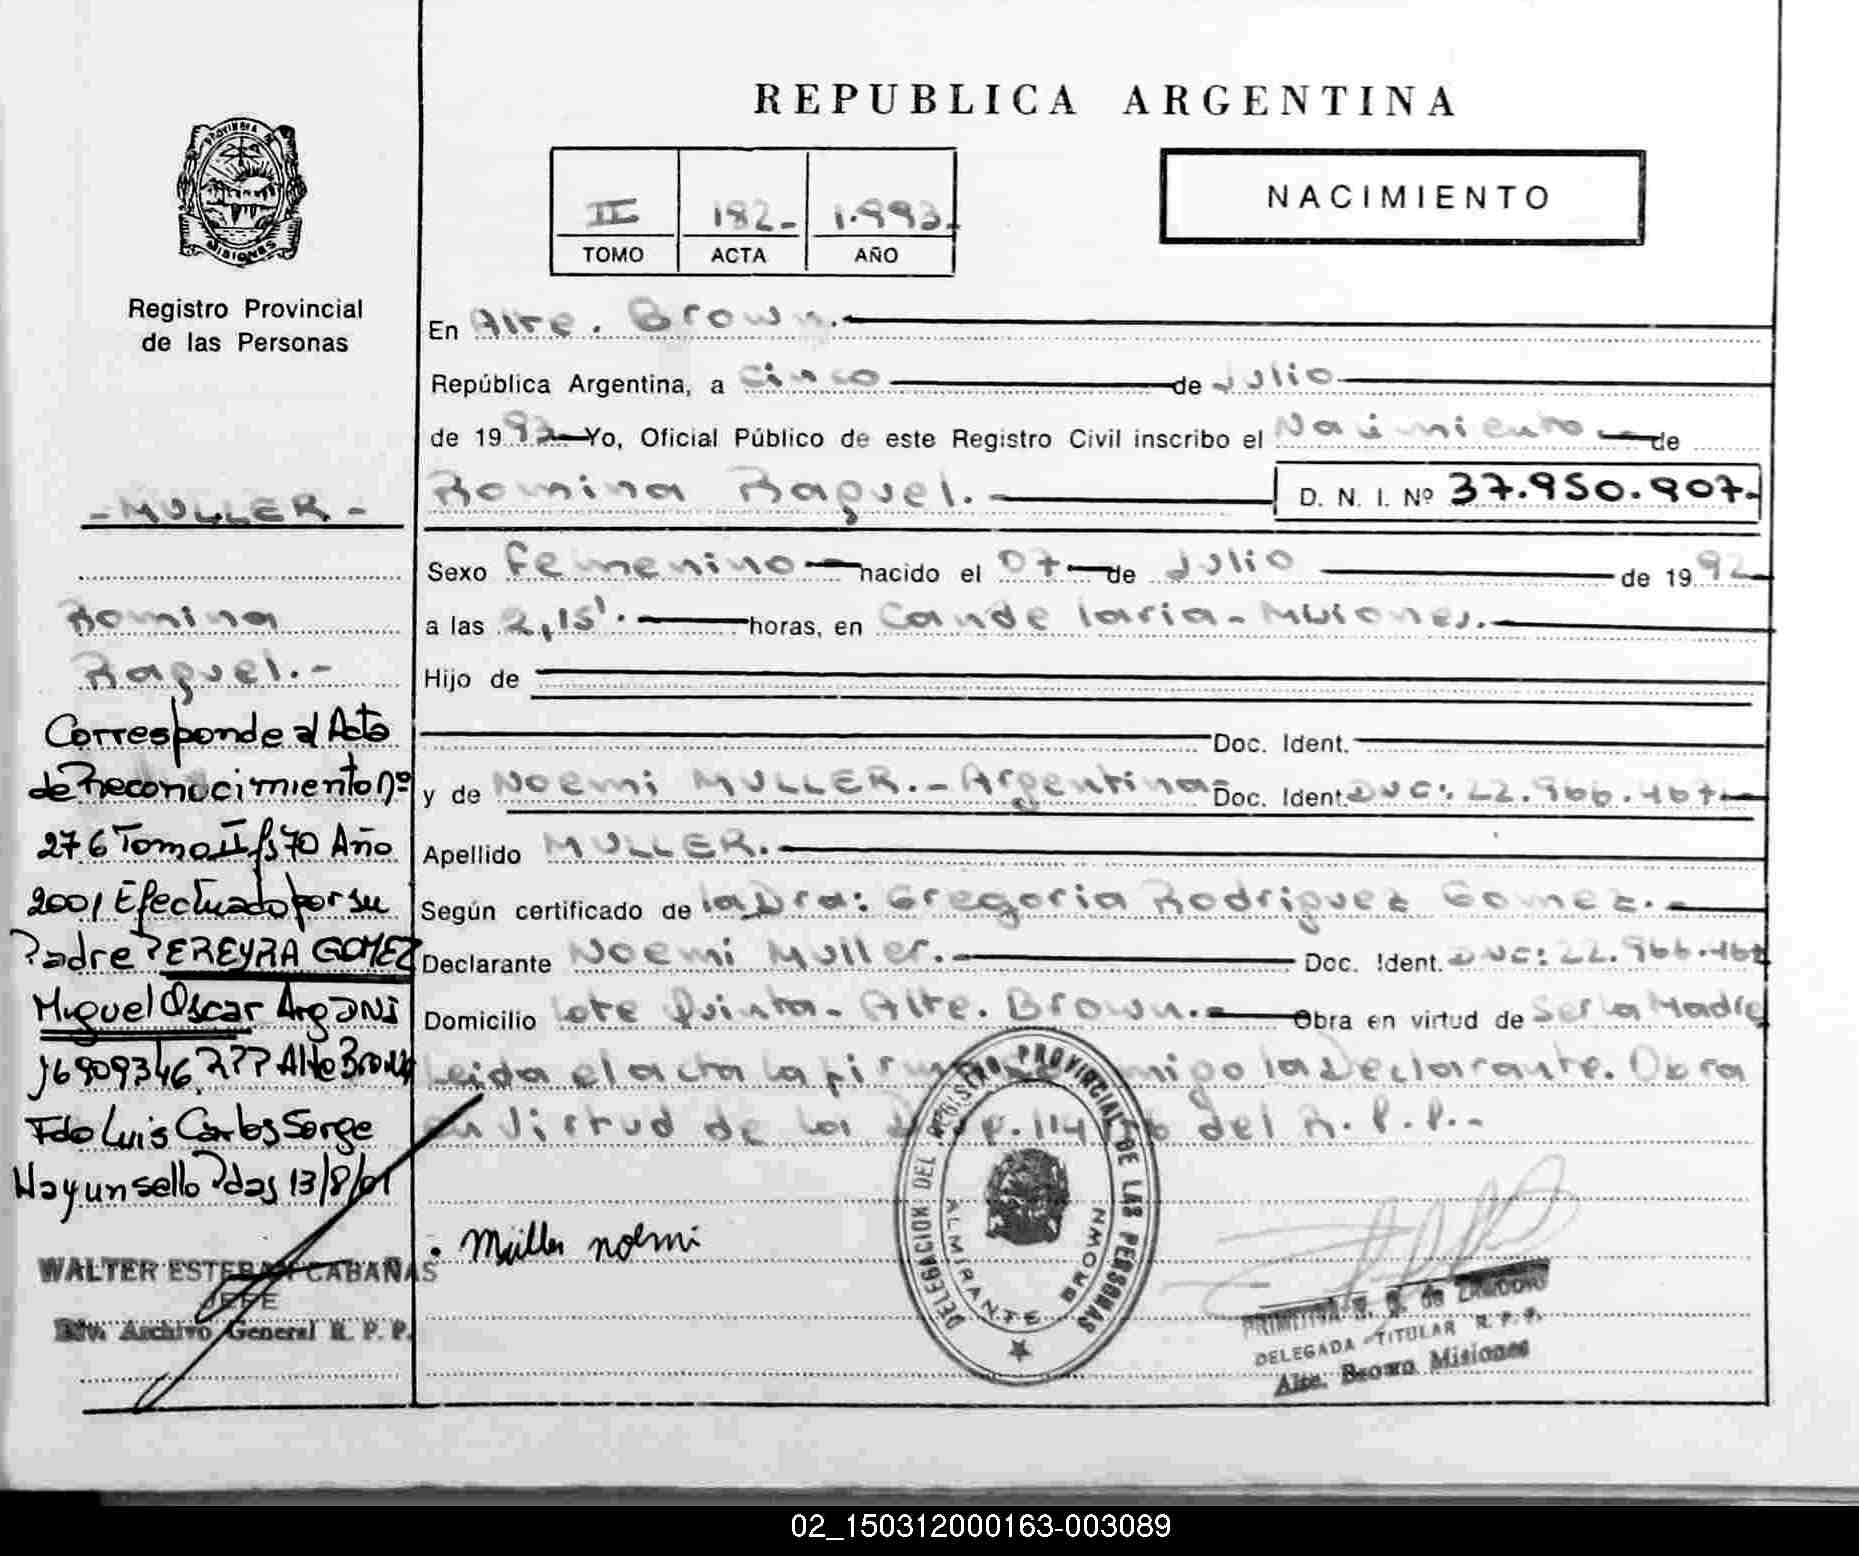 REPUBLICA ARGENTINA
NACIMIENTO
II 182- 1.993-
TOMO ACTA AÑO
PROVINCIA DE MISIONES
Registro Provincial
de las Personas
En Alte. Brown.-
República Argentina, a Cinco de Julio
de 1993 Yo, Oficial Público de este Registro Civil inscribo el Nacimiento de
Romina Raquel.- D. N. I. Nº 37.950.907-
Sexo Femenino nacido el 07 de Julio de 1992
a las 2,15'. horas, en Candelaria - Misiones.-
Hijo de
Doc. Ident.
y de Noemi MULLER.- Argentina- Doc. Ident. DUC: 22.966.467-
Apellido MULLER.-
Según certificado de la Dra: Gregoria Rodriguez Gomez.-
Declarante Noemi Muller.- Doc. Ident. DUC: 22.966.467
Domicilio lote Quinta - Alte. Brown.- Obra en virtud de Ser la Madre
Leida el acta la migo la Declarante. Obra
en Virtud de la del R. P. P.-
- MULLER -
Romina
Raquel.-
Corresponde al Acta
de Reconocimiento nº
276 Tomo II fs 70 Año
2001 Efectuado por su
Padre PEREYRA GOMEZ
Miguel Oscar Arg DNI
16909346, RPP Alte Brown
Fdo Luis Carlos Sorge
Hay un sello Pdas 13/8/01
WALTER ESTEBAN CABAÑAS
JEFE
Div. Archivo General R. P. P.
Müller noemi
DELEGACION DEL REGISTRO PROVINCIAL DE LAS PERSONAS
ALMIRANTE BROWN
PRIMITIVA de
DELEGADA TITULAR R. P. P.
Alte. Brown Misiones
02_150312000163-003089